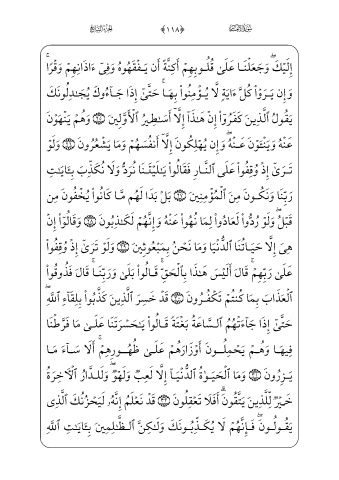 سورة الأنعام ﴿١١٨﴾ الجزء السابع
إِلَيْكَ ۖ وَجَعَلْنَا عَلَىٰ قُلُوبِهِمْ أَكِنَّةً أَن يَفْقَهُوهُ وَفِىٓ ءَاذَانِهِمْ وَقْرًا ۚ
وَإِن يَرَوْا۟ كُلَّ ءَايَةٍ لَّا يُؤْمِنُوا۟ بِهَا ۚ حَتَّىٰٓ إِذَا جَآءُوكَ يُجَـٰدِلُونَكَ
يَقُولُ ٱلَّذِينَ كَفَرُوٓا۟ إِنْ هَـٰذَآ إِلَّآ أَسَـٰطِيرُ ٱلْأَوَّلِينَ ﴿٢٥﴾ وَهُمْ يَنْهَوْنَ
عَنْهُ وَيَنْـَٔوْنَ عَنْهُ ۖ وَإِن يُهْلِكُونَ إِلَّآ أَنفُسَهُمْ وَمَا يَشْعُرُونَ ﴿٢٦﴾ وَلَوْ
تَرَىٰٓ إِذْ وُقِفُوا۟ عَلَى ٱلنَّارِ فَقَالُوا۟ يَـٰلَيْتَنَا نُرَدُّ وَلَا نُكَذِّبَ بِـَٔايَـٰتِ
رَبِّنَا وَنَكُونَ مِنَ ٱلْمُؤْمِنِينَ ﴿٢٧﴾ بَلْ بَدَا لَهُم مَّا كَانُوا۟ يُخْفُونَ مِن
قَبْلُ ۖ وَلَوْ رُدُّوا۟ لَعَادُوا۟ لِمَا نُهُوا۟ عَنْهُ وَإِنَّهُمْ لَكَـٰذِبُونَ ﴿٢٨﴾ وَقَالُوٓا۟ إِنْ
هِىَ إِلَّا حَيَاتُنَا ٱلدُّنْيَا وَمَا نَحْنُ بِمَبْعُوثِينَ ﴿٢٩﴾ وَلَوْ تَرَىٰٓ إِذْ وُقِفُوا۟
عَلَىٰ رَبِّهِمْ ۚ قَالَ أَلَيْسَ هَـٰذَا بِٱلْحَقِّ ۚ قَالُوا۟ بَلَىٰ وَرَبِّنَا ۚ قَالَ فَذُوقُوا۟
ٱلْعَذَابَ بِمَا كُنتُمْ تَكْفُرُونَ ﴿٣٠﴾ قَدْ خَسِرَ ٱلَّذِينَ كَذَّبُوا۟ بِلِقَآءِ ٱللَّهِ ۖ
حَتَّىٰٓ إِذَا جَآءَتْهُمُ ٱلسَّاعَةُ بَغْتَةً قَالُوا۟ يَـٰحَسْرَتَنَا عَلَىٰ مَا فَرَّطْنَا
فِيهَا وَهُمْ يَحْمِلُونَ أَوْزَارَهُمْ عَلَىٰ ظُهُورِهِمْ ۚ أَلَا سَآءَ مَا
يَزِرُونَ ﴿٣١﴾ وَمَا ٱلْحَيَوٰةُ ٱلدُّنْيَآ إِلَّا لَعِبٌ وَلَهْوٌ ۖ وَلَلدَّارُ ٱلْـَٔاخِرَةُ
خَيْرٌ لِّلَّذِينَ يَتَّقُونَ ۗ أَفَلَا تَعْقِلُونَ ﴿٣٢﴾ قَدْ نَعْلَمُ إِنَّهُۥ لَيَحْزُنُكَ ٱلَّذِى
يَقُولُونَ ۖ فَإِنَّهُمْ لَا يُكَذِّبُونَكَ وَلَـٰكِنَّ ٱلظَّـٰلِمِينَ بِـَٔايَـٰتِ ٱللَّهِ